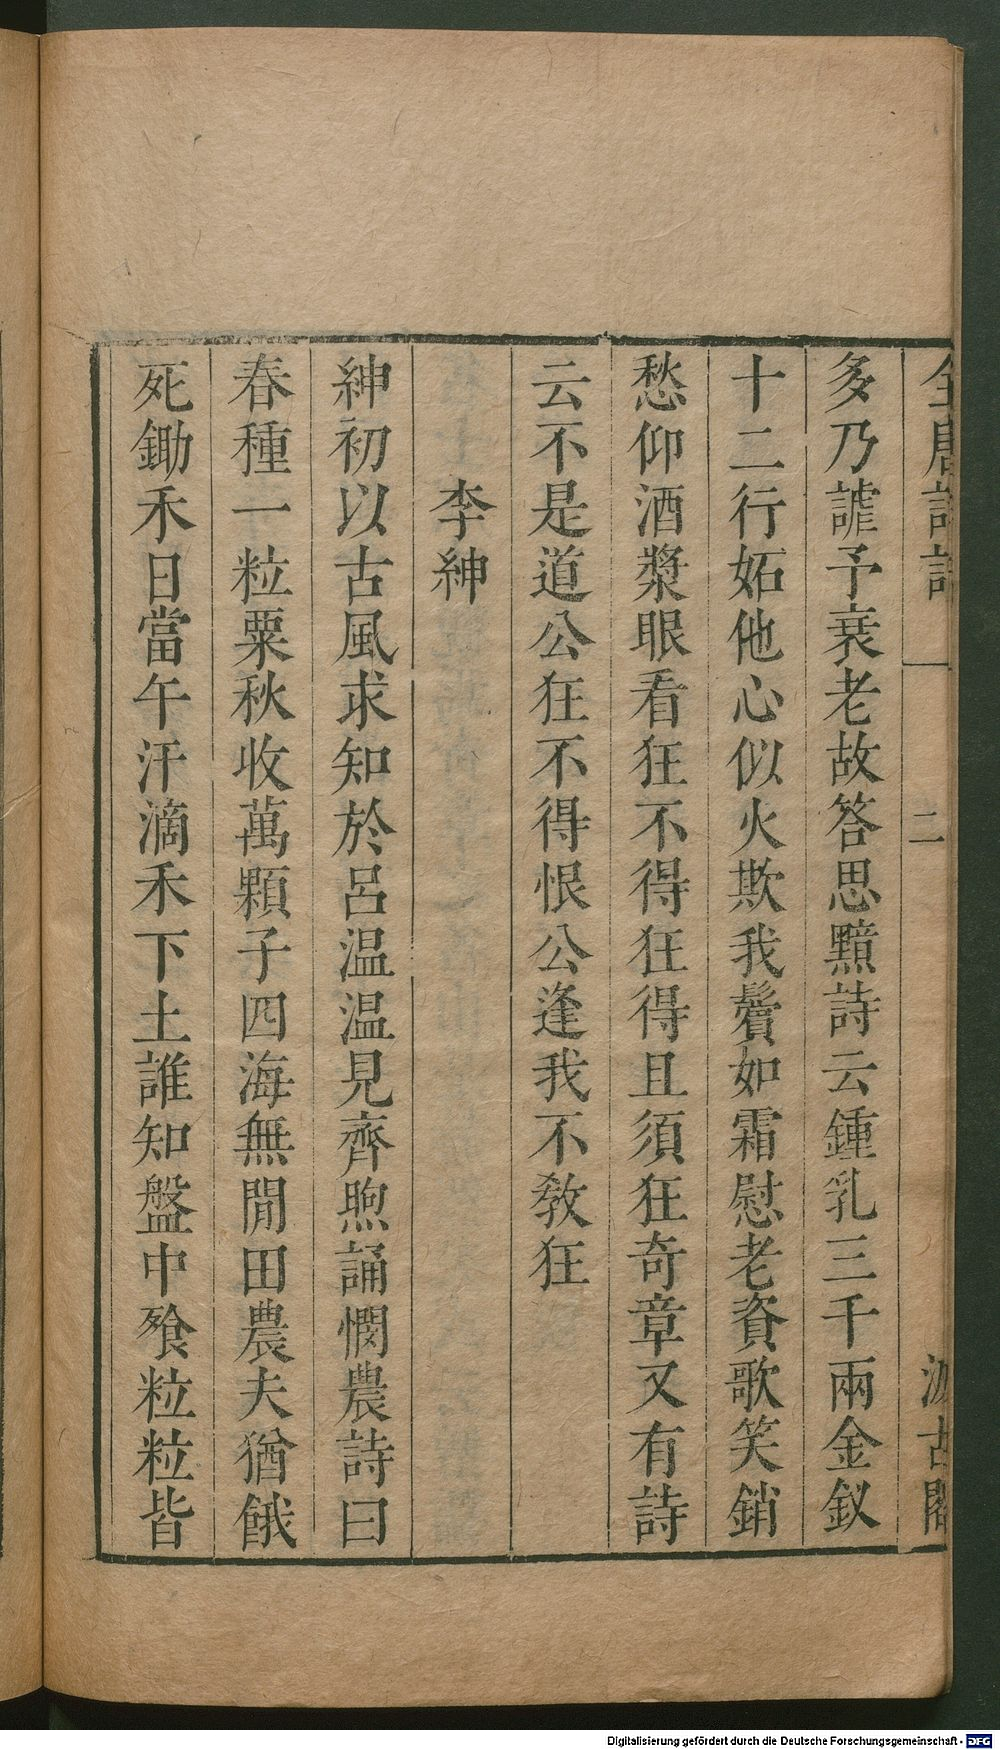 全唐詩話
二
汲古閣
多乃謔予衰老故答思黯詩云鍾乳三千兩金釵
十二行妬他心似火欺我鬢如霜慰老資歌笑銷
愁仰酒漿眼看狂不得狂得且須狂奇章又有詩
云不是道公狂不得恨公逢我不教狂
李紳
紳初以古風求知於呂温温見齊煦誦憫農詩曰
春種一粒粟秋收萬顆子四海無閒田農夫猶餓
死鋤禾日當午汗滴禾下土誰知盤中飱粒粒皆
Digitalisierung gefördert durch die Deutsche Forschungsgemeinschaft - DFG